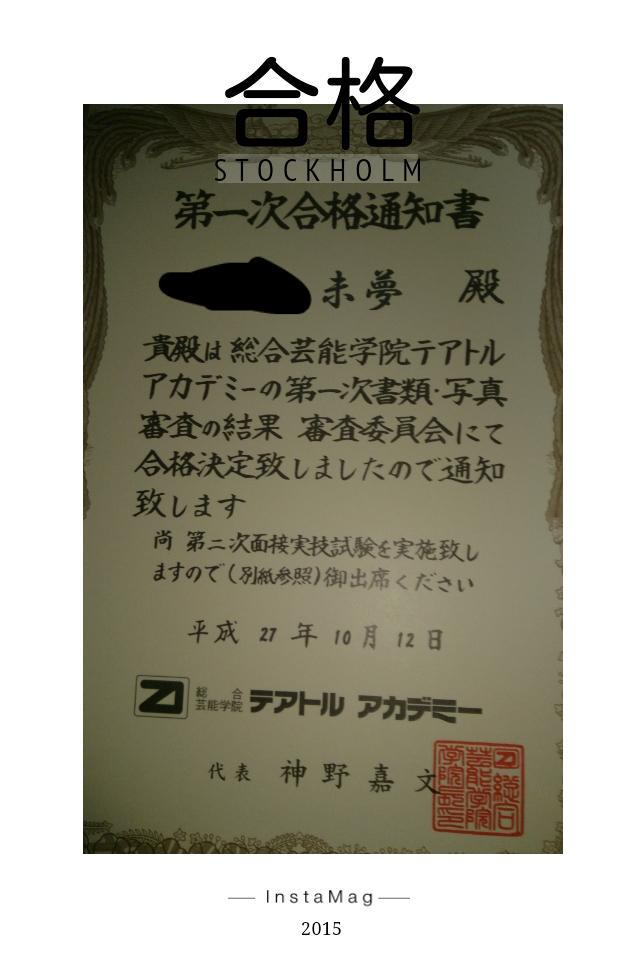 合格
STOCKHOLM
第一次合格通知書
未夢 殿
貴殿は総合芸能学院テアトル
アカデミーの第一次書類·写真
審査の結果 審査委員会にて
合格決定致しましたので通知
致します
尚 第二次面接実技試験を実施致し
ますので(別紙参照)御出席ください
平成 27 年 10 月 12 日
総合
芸能学院 テアトル アカデミー
代表 神野嘉文
InstaMag
2015